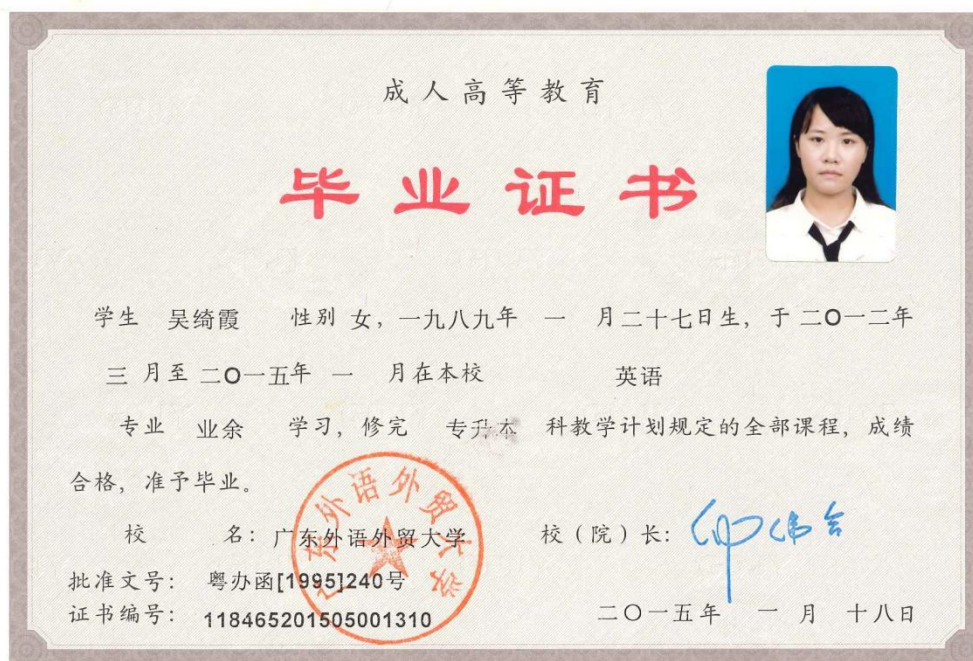 成人高等教育
毕业证书
学生 吴绮霞 性别 女，一九八九年 一 月二十七日生，于二O一二年
三 月至 二O一五年 一 月在本校 英语
专业 业余 学习，修完 专升本 科教学计划规定的全部课程，成绩
合格，准予毕业。
广东外语外贸大学
校 名：广东外语外贸大学 校（院）长：仲伟合
批准文号：粤办函[1995]240号
证书编号：118465201505001310 二〇一五年 一 月 十八日